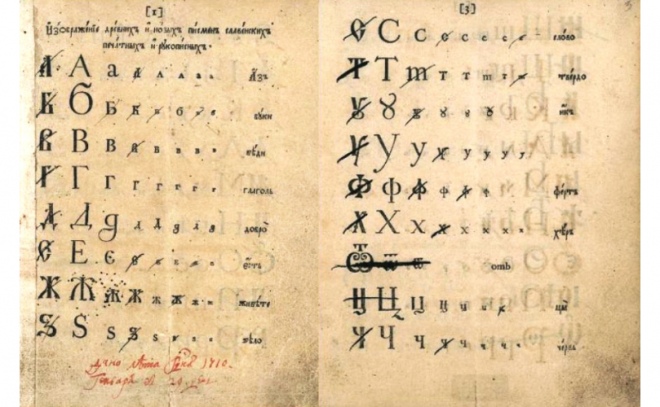 [1]
Изображенїе древнихъ и новыхъ писменъ славенскихъ
печатныхъ и рукописныхъ.
А А а а а а а а Азъ
Б Б Б б б б б буки
В В в в в в в вѣди
Г Г г г г г г г глаголь
Д Д д д д д д добро
Е Е е е е е е есть
Ж Ж Ж ж ж ж ж живѣте
Ѕ Ѕ ѕ ѕ ѕ ѕ ѕ ѕѣло
дано лѣта 1710.
Генваря 29
[3]
С С с с с с с слово
Т Т т т т т т твердо
Ꙋ ꙋ ꙋ ꙋ ꙋ ꙋ икъ
У У у у у у у
Ф ф ф ф ф ф ф фертъ
Х Х х х х х х херъ
Ѿ ѿ ѿ отъ
Ц Ц ц ц ц ц ц цы
Ч Ч ч ч ч ч ч червь